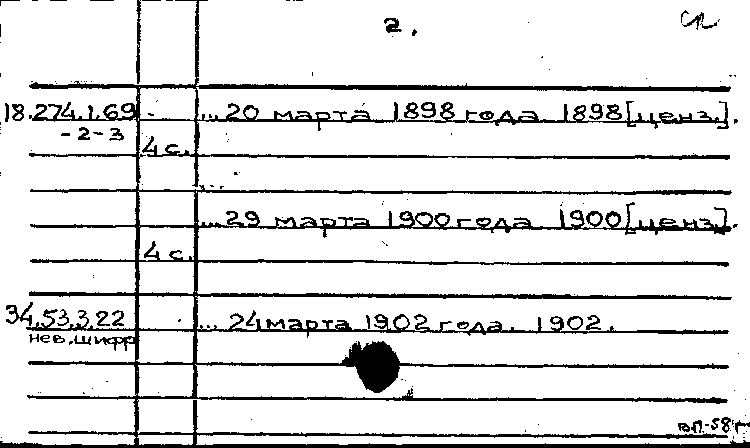 2.
18.274.1.69 ... 20 марта 1898 года 1898 [ценз.].
-2-3
4 с.
...
... 29 марта 1900 года. 1900 [ценз.].
4 с.
34.53.3.22 ... 24 марта 1902 года. 1902.
нев. шифр